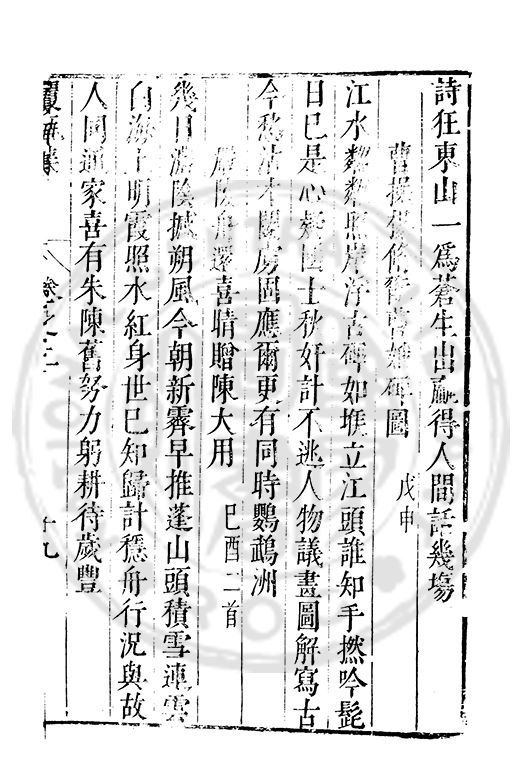 詩狂東山一為蒼生出贏得人間話幾場
曹操楊脩觀曹娥碑圖 戊申
江水粼粼照岸浮古碑如堠立江頭誰知手撚吟髭
日已是心疑國士秋奸計不逃人物議畫圖解寫古
今愁 才 虜固應爾更有同時鸚鵡洲
舟還喜晴贈陳大用 己酉二首
幾日濃陰撼朔風今朝新霽早推蓬山頭積雪連雲
白海上明霞照水紅身世已知歸計穩舟行況與故
人同通家喜有朱陳舊努力躬耕待歲豐
卷之三 十九